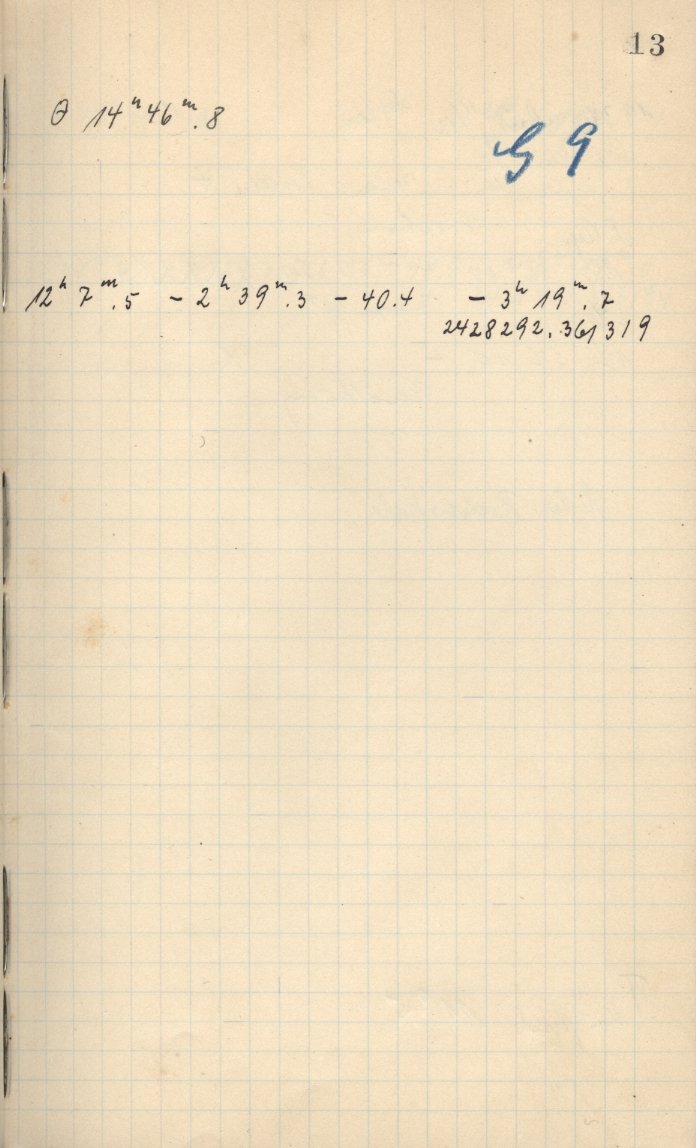 13
θ 14ʰ46ᵐ.8
G 9
12ʰ 7ᵐ.5 - 2ʰ 39ᵐ.3 - 40.4 - 3ʰ 19ᵐ.7
2428292.361319